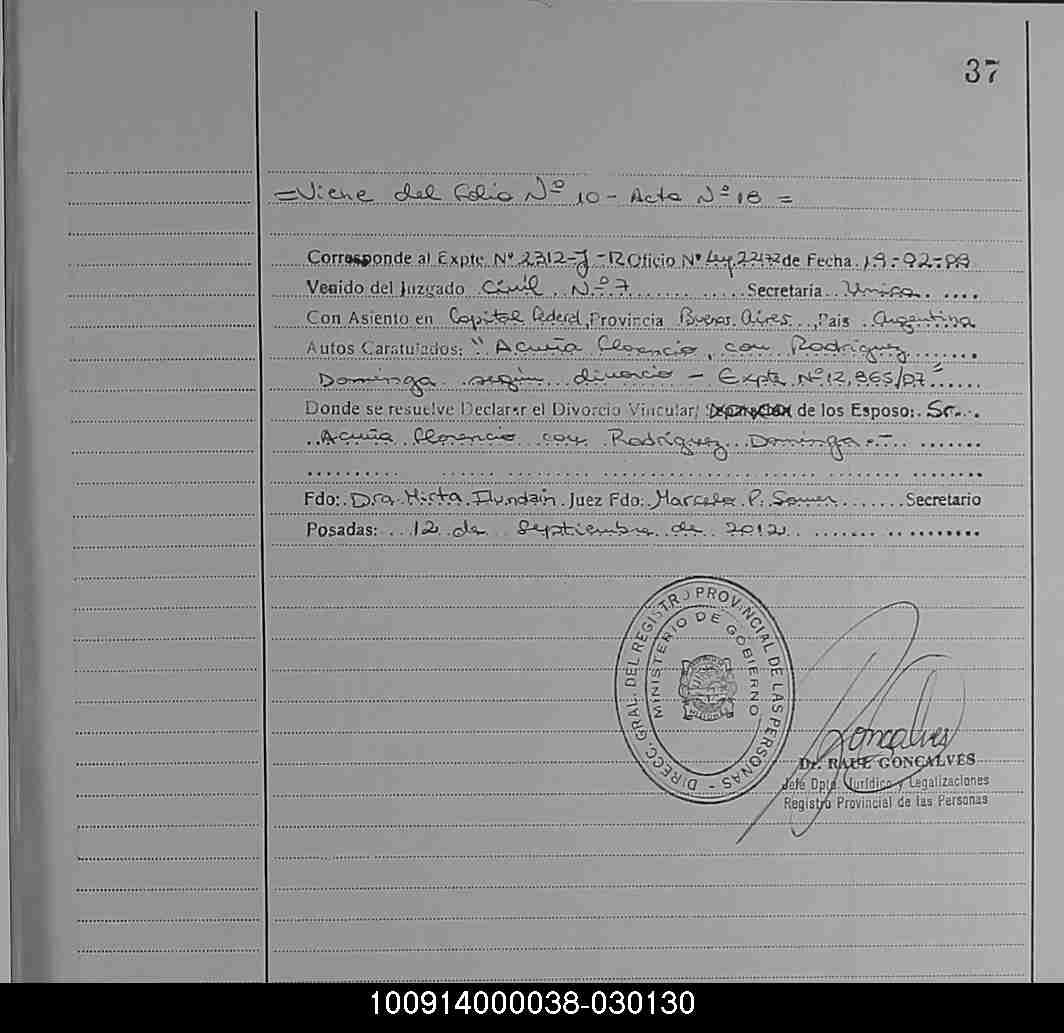 37
=Viene del Folio Nº 10 - Acta Nº 18 =
Corresponde al Expte. Nº 2312-J-12 Oficio Nº Ley.22172 de Fecha 19-02-09
Venido del Juzgado Civil Nº 7 Secretaría Unica
Con Asiento en Capital Federal, Provincia Buenos Aires, Pais Argentina
Autos Caratulados: "Acuña Florencio, con Rodríguez
Dominga según divorcio - Expte Nº 12.865/07"
Donde se resuelve Declarar el Divorcio Vincular/ de los Esposo: Sr.
Acuña Florencio con Rodríguez Dominga.-
Fdo: Dra. Mirta Ilundain Juez Fdo: Marcela P. Somer Secretario
Posadas: 12 de Septiembre de 2012
DIRECC. GRAL. DEL REGISTRO PROVINCIAL DE LAS PERSONAS -
MINISTERIO DE GOBIERNO
Goncalves
Dr. RAUL GONCALVES
Jefe Dpto. Jurídico y Legalizaciones
Registro Provincial de las Personas
100914000038-030130